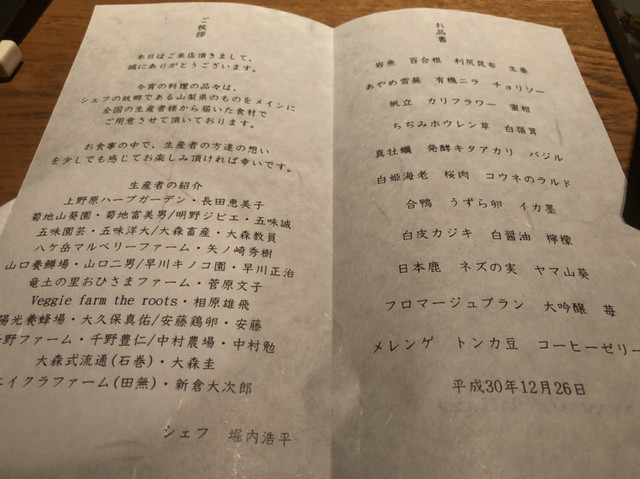 ご挨拶
本日はご来店頂きまして、
誠にありがとうございます。
今宵の料理の品々は、
シェフの故郷である山梨県のものをメインに
全国の生産者様から届いた食材で
ご用意させて頂いております。
お食事の中で、生産者の方達の想い
を少しでも感じてお楽しみ頂ければ幸いです。
生産者の紹介
上野原ハーブガーデン・長田恵美子
菊地山葵園・菊地富美男/明野ジビエ・五味誠
五味園芸・五味洋大/大森畜産・大森教員
八ケ岳マルベリーファーム・矢ノ崎秀樹
山口養鱒場・山口二男/早川キノコ園・早川正治
竜土の里おひさまファーム・菅原文子
Veggie farm the roots・相原雄飛
陽光養蜂場・大久保真佑/安藤鶏卵・安藤
野ファーム・千野豊仁/中村農場・中村勉
大森式流通(石巻)・大森圭
エイクラファーム(田無)・新倉大次郎
シェフ 堀内浩平
お品書
岩魚 百合根 利尻昆布 生姜
あやめ雪蕪 有機ニラ チョリソー
帆立 カリフラワー 蜜柑
ちぢみホウレン草 白嶺茸
真牡蠣 発酵キタアカリ バジル
白姫海老 桜肉 コウネのラルド
合鴨 うずら卵 イカ墨
白皮カジキ 白醤油 檸檬
日本鹿 ネズの実 ヤマ山葵
フロマージュブラン 大吟醸 苺
メレンゲ トンカ豆 コーヒーゼリー
平成30年12月26日